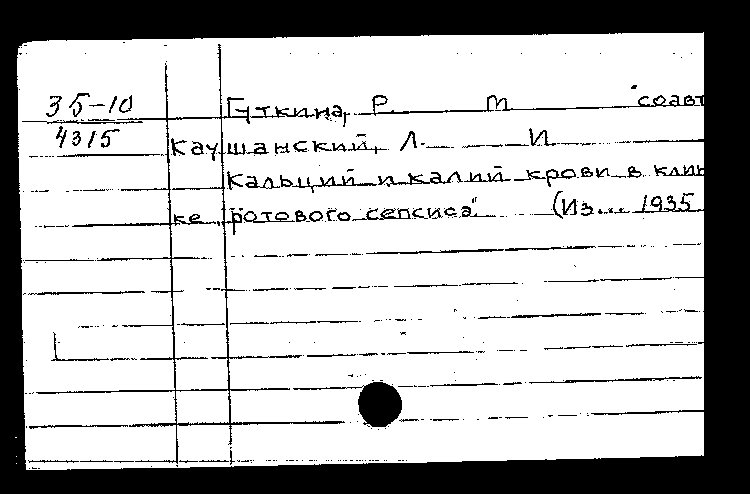 35-10
4315
Гуткина, Р. М соавт
Каушанский, Л. И
Кальций и калий крови в клин
ке "ротового сепсиса" (Из... 1935